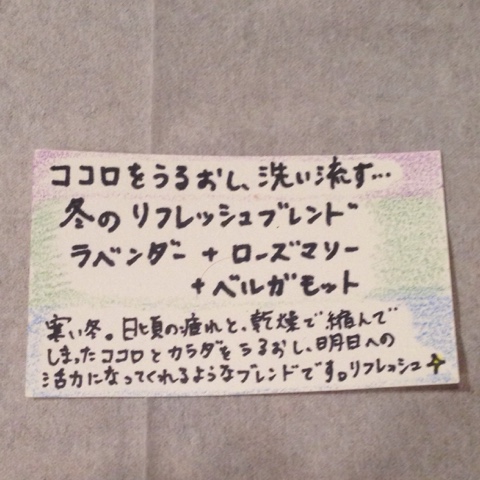 ココロをうるおし、洗い流す...
冬のリフレッシュブレンド
ラベンダー + ローズマリー
+ ベルガモット
寒い冬。日頃の疲れと、乾燥で縮んで
しまったココロとカラダをうるおし、明日への
活力になってくれるようなブレンドです。リフレッシュ